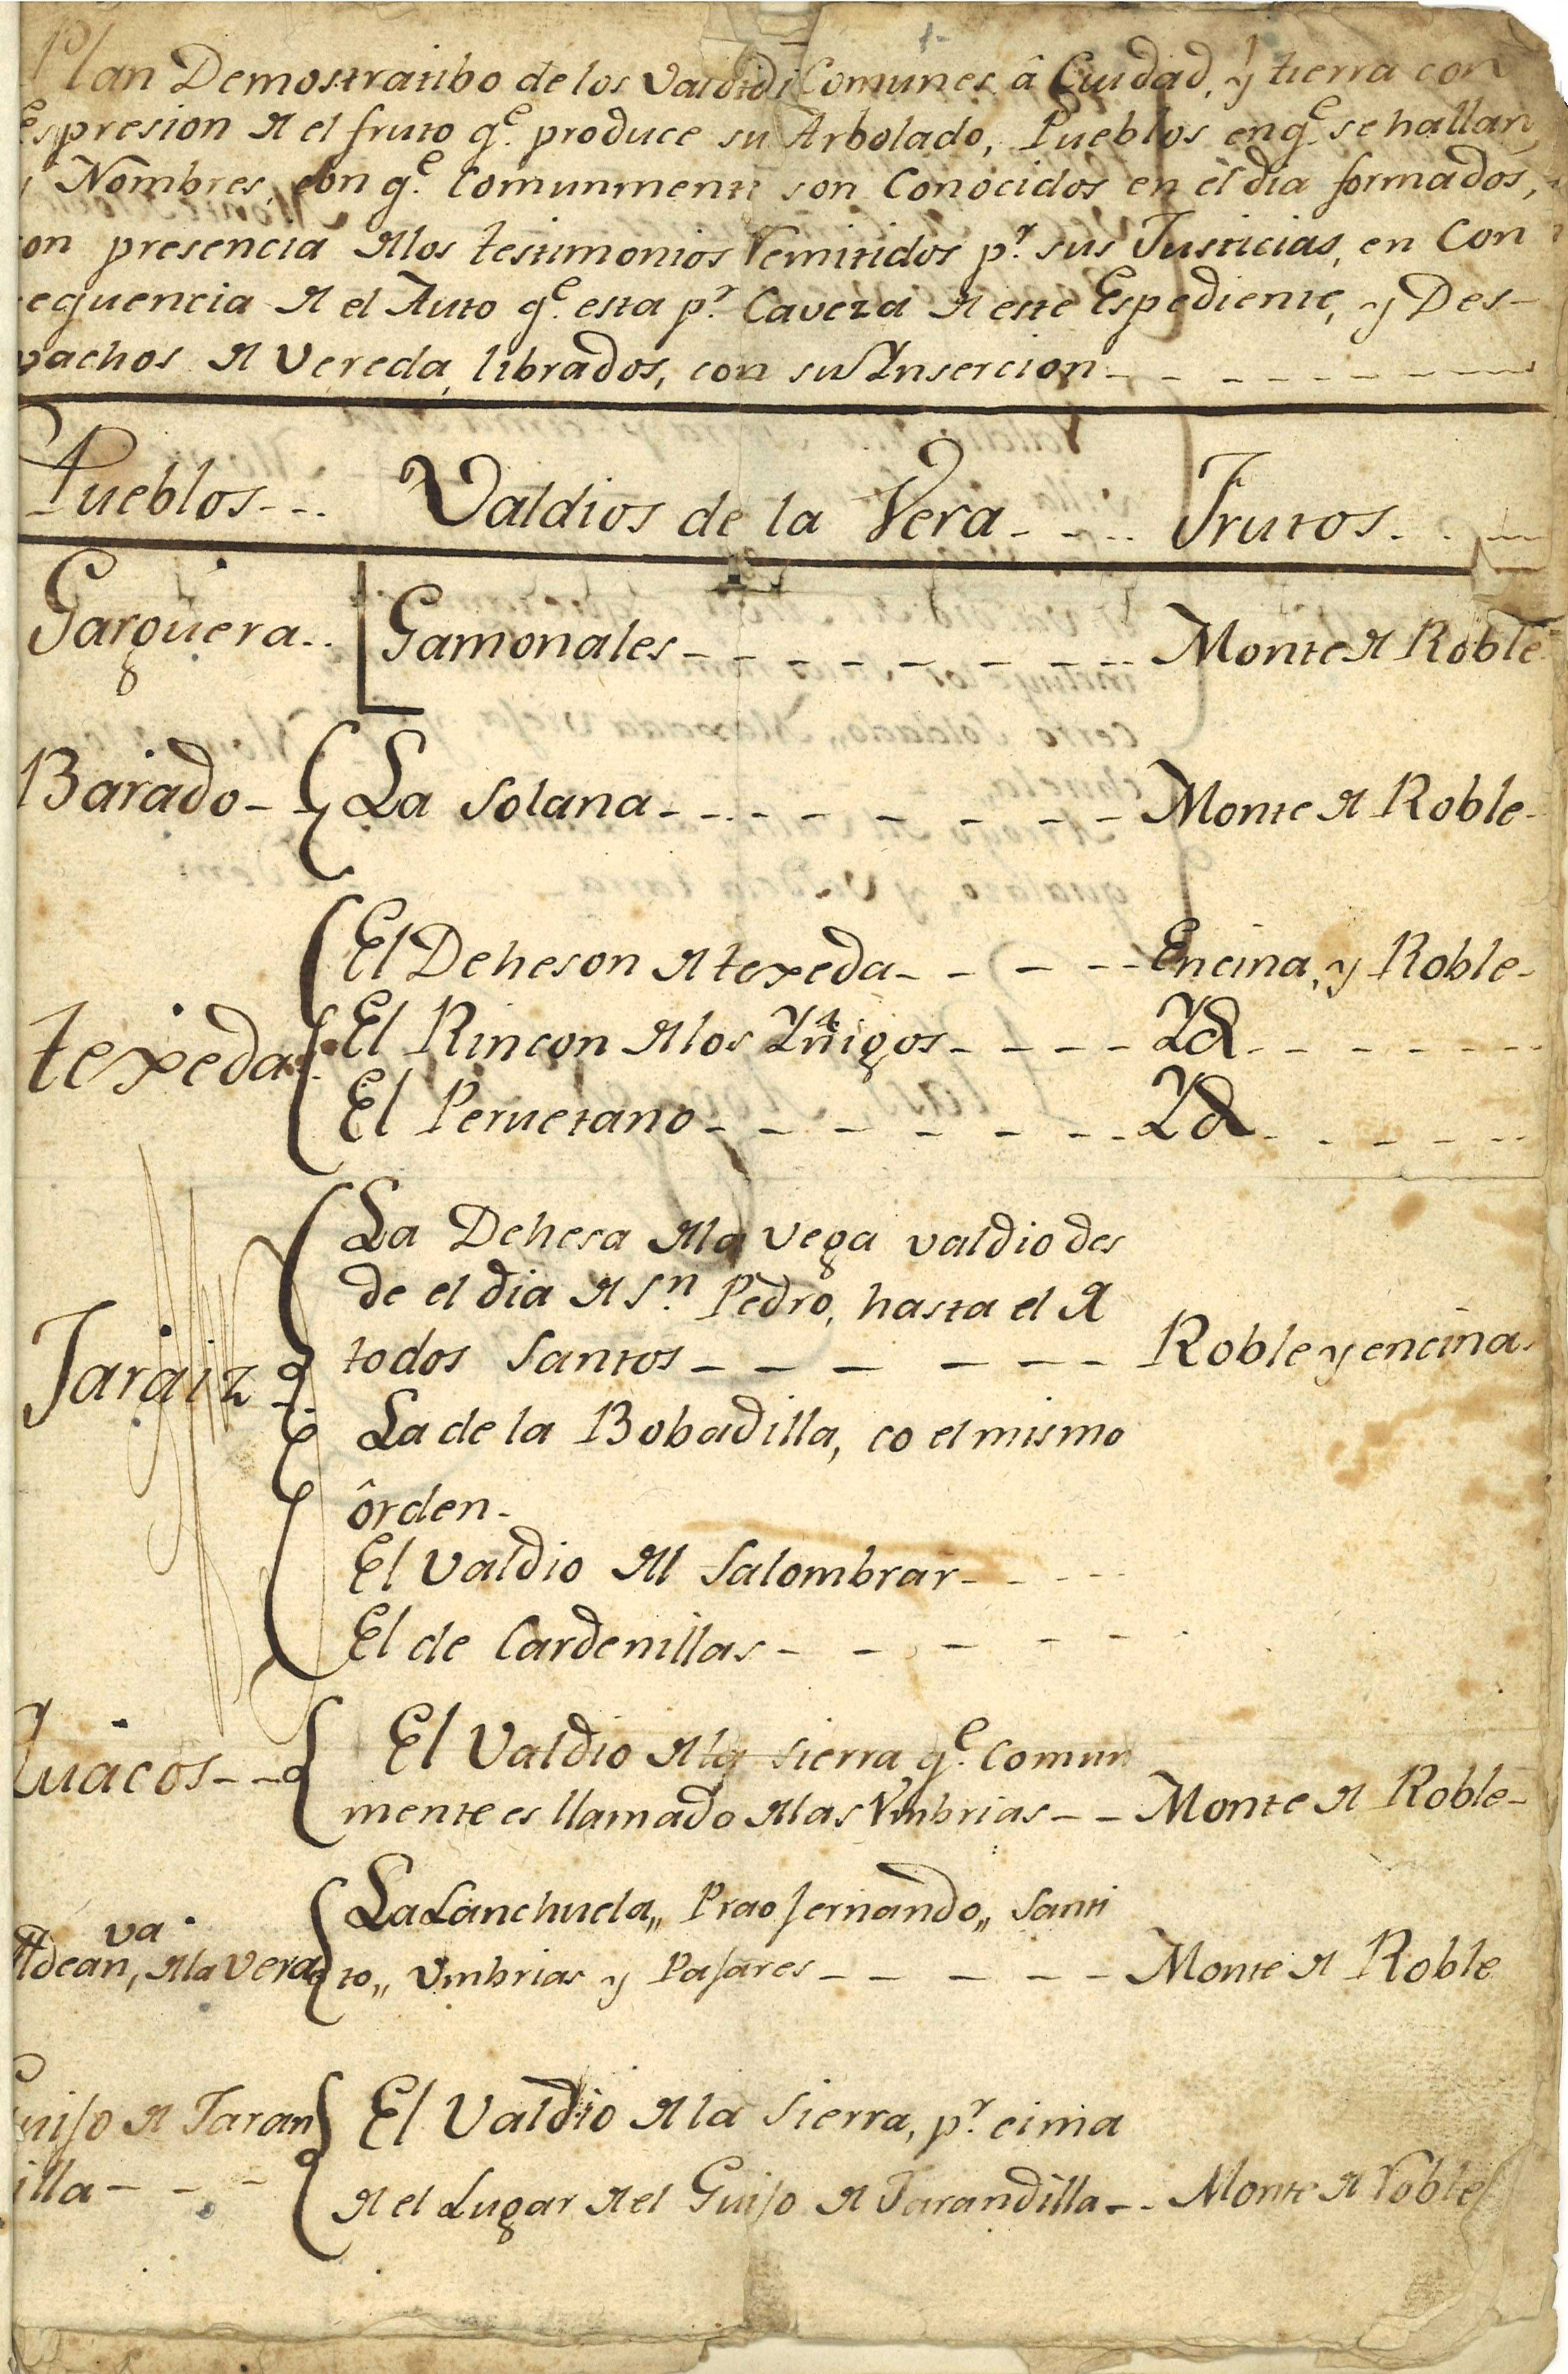 Plan Demostratibo de los Valdios Comunes â Ciudad, y tierra con
espresion de el fruto q.e produce su Arbolado, Pueblos en q.e se hallan,
Nombres, con q.e comunmente son Conocidos en el dia formados,
on presencia de los testimonios remitidos p.r sus Justicias, en Con
equencia de el Auto q.e esta p.r Caveza de este Espediente, y Des-
pachos de Vereda, librados, con su Ynsercion
Pueblos Valdios de la Vera Frutos
Garguera Gamonales Monte de Roble
Barado La Solana Monte de Roble
texeda El Deheson de texeda Encina, y Roble
El Rincon de los Yñigos Yd
El Peruetano Yd
La Dehesa de la Vega valdio des
de el dia de S.n Pedro, hasta el de
Jaraiz todos Santos Roble y encina
La de la Bobadilla, co el mismo
ôrden
El Valdio del Salombrar
El de Cardenillas
El Valdio de la sierra q.e comun
Cuacos mente es llamado de las Vmbrias Monte de Roble
La Lanchuela,, Prao fernando,, Santi
Aldean.va de la Vera to,, Vmbrias y Pajares Monte de Roble
Guijo de Jaran El Valdio de la Sierra, p.r cima
illa de el Lugar de el Guijo de Jarandilla Monte de roble